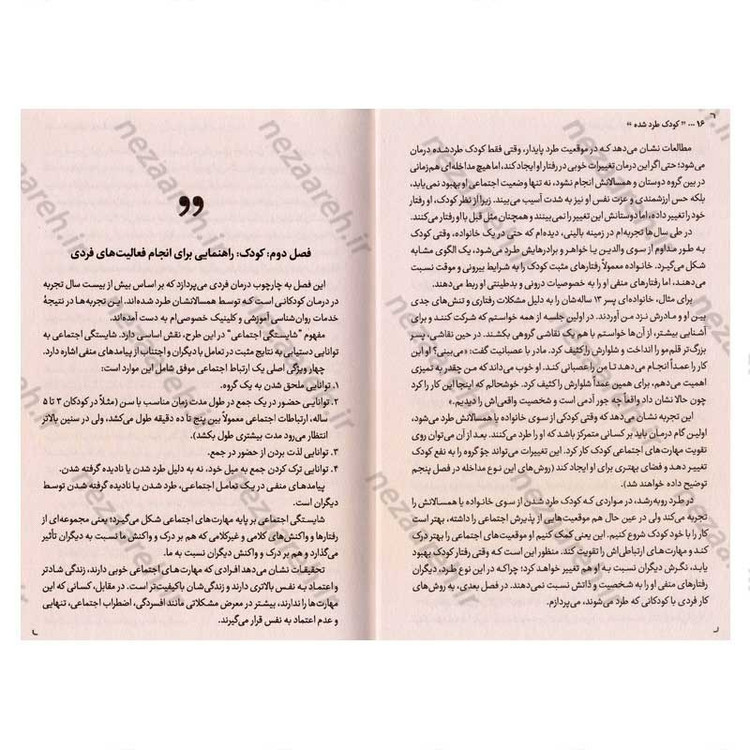 ۱۶ ... " کودک طرد شده "
مطالعات نشان می‌دهد که در موقعیت طرد پایدار، وقتی فقط کودک طردشده درمان
می‌شود؛ حتی اگر این درمان تغییرات خوبی در رفتار او ایجاد کند، اما هیچ مداخله‌ای هم‌زمانی
در بین گروه دوستان و همسالانش انجام نشود، نه تنها وضعیت اجتماعی او بهبود نمی‌یابد،
بلکه حس ارزشمندی و عزت نفس او نیز به شدت آسیب می‌بیند. زیرا از نظر کودک، او رفتار
خود را تغییر داده، اما دوستانش این تغییر را نمی‌بینند و همچنان مثل قبل با او رفتار می‌کنند.
در طی سال‌ها تجربه‌ام در زمینه بالینی، دیده‌ام که حتی در یک خانواده، وقتی کودک
به طور مداوم از سوی والدین یا خواهر و برادرهایش طرد می‌شود، یک الگوی مشابه
شکل می‌گیرد. خانواده معمولاً رفتارهای مثبت کودک را به شرایط بیرونی و موقت نسبت
می‌دهند، اما رفتارهای منفی او را به خصوصیات درونی و بدطینتی او ربط می‌دهند.
برای مثال، خانواده‌ای پسر ۱۳ ساله‌شان را به دلیل مشکلات رفتاری و تنش‌های جدی
بین او و مادرش نزد من آوردند. در اولین جلسه از همه خواستم که شرکت کنند و برای
آشنایی بیشتر، از آن‌ها خواستم با هم یک نقاشی گروهی بکشند. در حین نقاشی، پسر
بزرگ‌تر قلم‌مو را انداخت و شلوارش را کثیف کرد. مادر با عصبانیت گفت: «می‌بینی؟ او این
کار را عمداً انجام می‌دهد تا من را عصبانی کند. او خوب می‌داند که من چقدر به تمیزی
اهمیت می‌دهم، برای همین عمداً شلوارش را کثیف کرد. خوشحالم که اینجا این کار را کرد
چون حالا نشان داد واقعاً چه جور آدمی است و شخصیت واقعی‌اش را دیدیم.»
این تجربه نشان می‌دهد که وقتی کودکی از سوی خانواده یا همسالانش طرد می‌شود،
اولین گام درمان باید بر کسانی متمرکز باشد که او را طرد می‌کنند. بعد از آن می‌توان روی
تقویت مهارت‌های اجتماعی کودک کار کرد. این تغییرات می‌تواند جوّ گروه را به نفع کودک
تغییر دهد و فضای بهتری برای او ایجاد کند (روش‌های این نوع مداخله در فصل پنجم
توضیح داده خواهند شد).
در طرد روبه‌رشد، در مواردی که کودک طرد شدن از سوی خانواده یا همسالانش را
تجربه می‌کند ولی در عین حال هم موقعیت‌هایی از پذیرش اجتماعی را داشته، بهتر است
کار را با خود کودک شروع کنیم. این یعنی کمک کنیم او موقعیت‌های اجتماعی را بهتر درک
کند و مهارت‌های ارتباطی‌اش را تقویت کند. منظور این است که وقتی رفتار کودک بهبود
یابد، نگرش دیگران نسبت به او هم تغییر خواهد کرد؛ چراکه در این نوع طرد، دیگران
رفتارهای منفی او را به شخصیت و ذاتش نسبت نمی‌دهند. در فصل بعدی، به روش‌های
کار فردی با کودکانی که طرد می‌شوند، می‌پردازم.
فصل دوم: کودک: راهنمایی برای انجام فعالیت‌های فردی
این فصل به چارچوب درمان فردی می‌پردازد که بر اساس بیش از بیست سال تجربه
در درمان کودکانی است که توسط همسالانشان طرد شده‌اند. این تجربه‌ها در نتیجهٔ
خدمات روان‌شناسی آموزشی و کلینیک خصوصی‌ام به دست آمده‌اند.
مفهوم "شایستگی اجتماعی" در این طرح، نقش اساسی دارد. شایستگی اجتماعی به
توانایی دستیابی به نتایج مثبت در تعامل با دیگران و اجتناب از پیامدهای منفی اشاره دارد.
چهار ویژگی اصلی یک ارتباط اجتماعی موفق شامل این موارد است:
۱. توانایی ملحق شدن به یک گروه.
۲. توانایی حضور در یک جمع در طول مدت زمان مناسب با سن (مثلاً در کودکان ۳ تا ۵
ساله، ارتباطات اجتماعی معمولاً بین پنج تا ده دقیقه طول می‌کشد، ولی در سنین بالاتر
انتظار می‌رود مدت بیشتری طول بکشد).
۳. توانایی لذت بردن از حضور در جمع.
۴. توانایی ترک کردن جمع به میل خود، نه به دلیل طرد شدن یا نادیده گرفته شدن.
پیامدهای منفی در یک تعامل اجتماعی، طرد شدن یا نادیده گرفته شدن توسط
دیگران است.
شایستگی اجتماعی بر پایه مهارت‌های اجتماعی شکل می‌گیرد؛ یعنی مجموعه‌ای از
رفتارها و واکنش‌های کلامی و غیرکلامی که هم بر درک و واکنش ما نسبت به دیگران تأثیر
می‌گذارد و هم بر درک و واکنش دیگران نسبت به ما.
تحقیقات نشان می‌دهد افرادی که مهارت‌های اجتماعی خوبی دارند، زندگی شادتر
و اعتماد به نفس بالاتری دارند و زندگی‌شان باکیفیت‌تر است. در مقابل، کسانی که این
مهارت‌ها را ندارند، بیشتر در معرض مشکلاتی مانند افسردگی، اضطراب اجتماعی، تنهایی
و عدم اعتماد به نفس قرار می‌گیرند.
nezaareh.ir